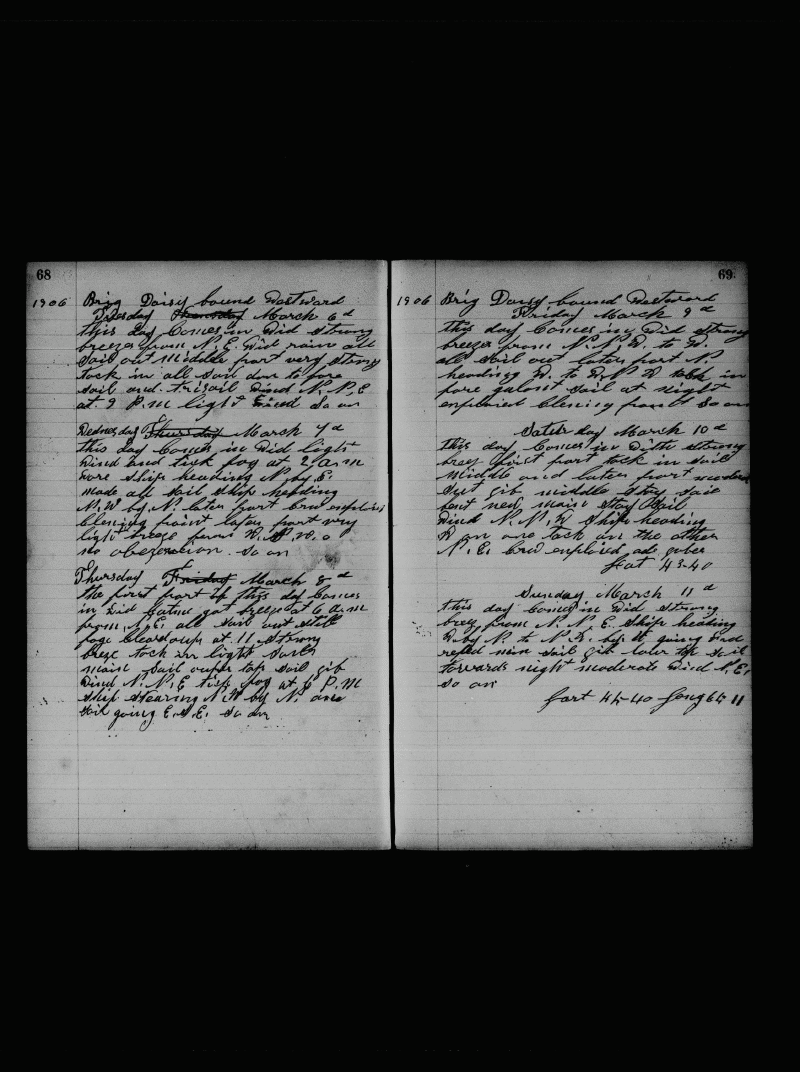 68
1906 Brig Daisy bound Westward
Tuesday Thursday March 6 d
this day Comes in Wid strong
breezes from N. E. Wid rain all
sail out middle part very strong
tock in all sail don to fore
sail and trisail Wind N. N. E
at 9 P.m light Wind So on
Wednesday Thursday March 7 d
this day Comes in Wid light
Wind and tick fog at 2 a m
wore ship heading N. by E.
made all sail ship heading
N. W by N. later part Crw emploied
blening paint later part very
light breeze from
no obseration. So on
Thursday Friday March 8 d
the first part of this day Comes
in Wid got breeze at 6 a.m
from N. E. all sail out still
foge up at 11 strong
breze tock in light Sails
main Sail outer tap sail gib
Wind N. N. E tick fog at 6 P.M
ship stearing N W by N. one
sail going E. S. E. So on
69
1906 Brig Daisy bound Westward
Friday March 9 d
this day Comes in Wid strong
breezes from N. N W. to W.
all sail out later part N.
heading W. to W. N W tock in
fore galent sail at night
emploied blening paent So on
Saturday March 10 d
this day Comes in With strong
breez first part tock in sail
middle and later part
gib middle stay sail
bent new main stay Sail
Wind N. N. W Ship heading
W on one tack on the other
N. E. Crw emploied
Lat 43-40
Sunday March 11 d
this day Comes in Wid strong
breez from N. N. E. Ship heading
W by N. to N. W. by W going
main sail gib lower tap sail
towards night moderate Wind N. E.
So on
44-40 Long 65 11